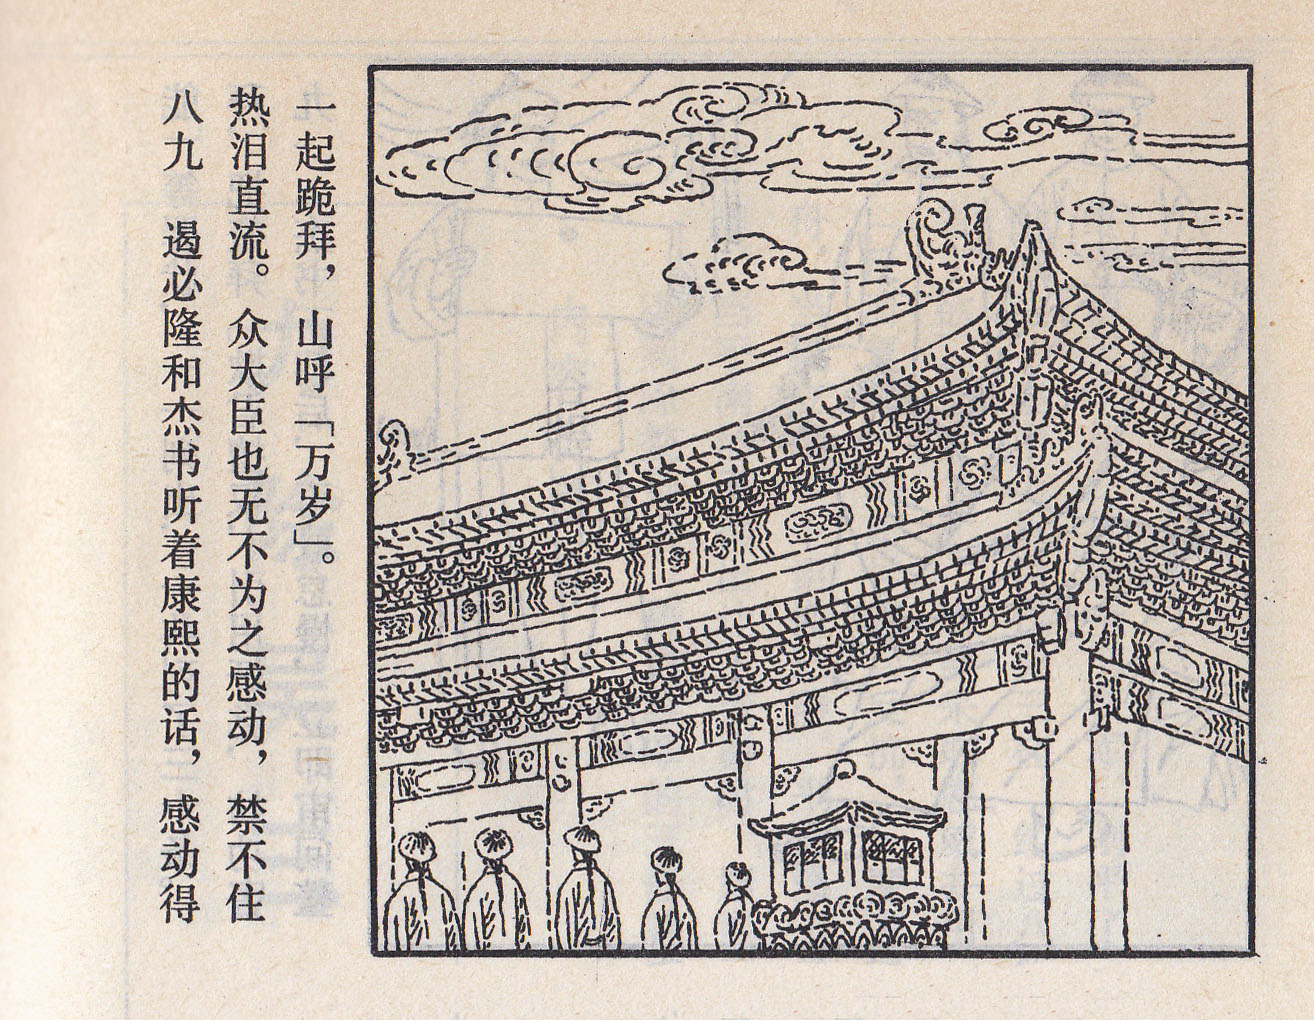 八九 遏必隆和杰书听着康熙的话，感动得
热泪直流。众大臣也无不为之感动，禁不住
一起跪拜，山呼「万岁」。